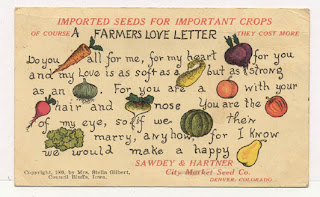 IMPORTED SEEDS FOR IMPORTANT CROPS
OF COURSE THEY COST MORE
A FARMERS LOVE LETTER
Do you all for me, for my heart for you
and my Love is as soft as a but as strong
as an . For you are a with your
hair and nose You are the
of my eye, so if we
marry, any how, for I know
we would make a happy
SAWDEY & HARTNER
City Market Seed Co.
DENVER, COLORADO.
Copyright, 1909, by Mrs. Stella Gilbert,
Council Bluffs, Iowa.